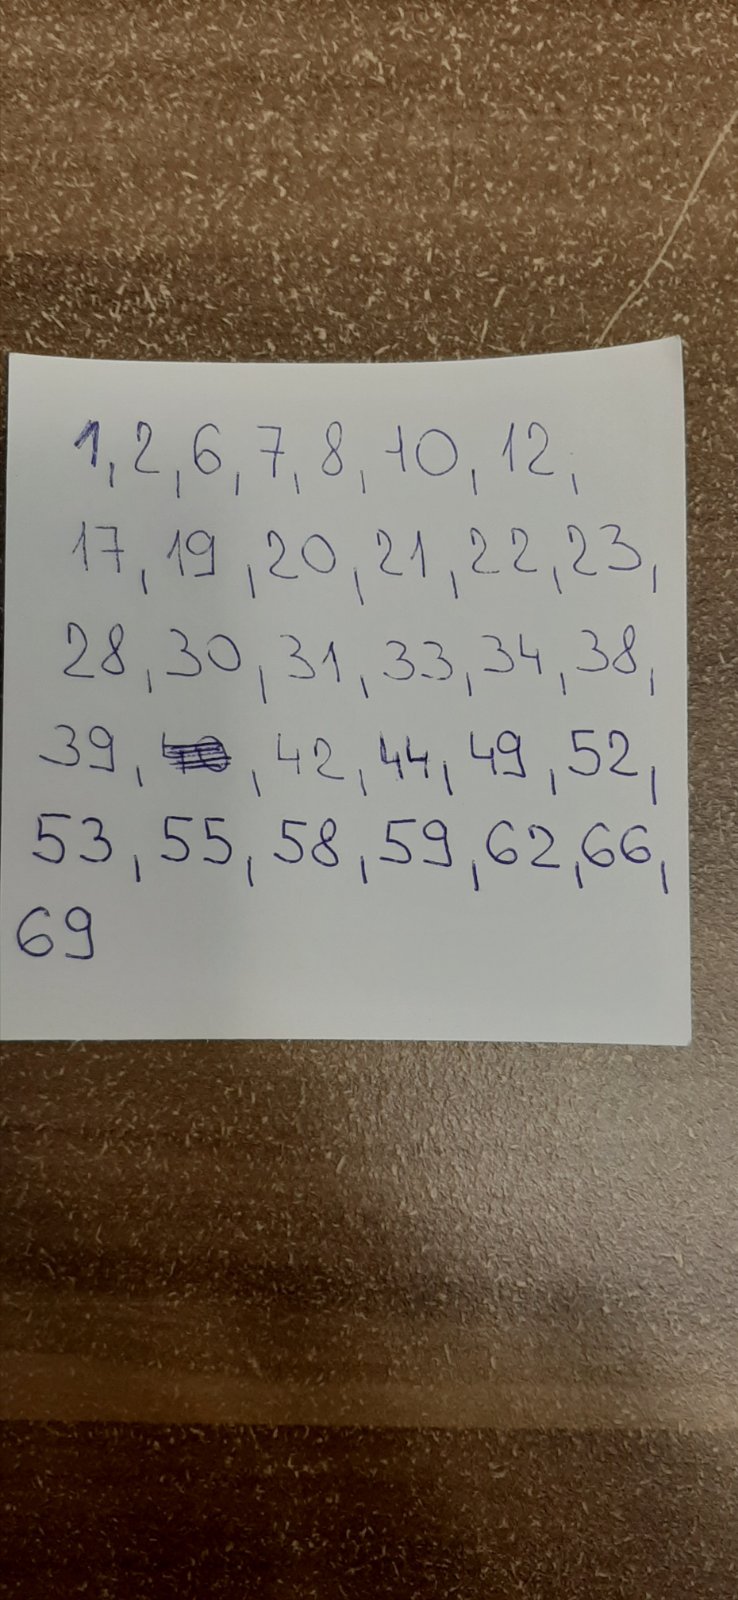 1, 2, 6, 7, 8, 10, 12,
17, 19, 20, 21, 22, 23,
28, 30, 31, 33, 34, 38,
39, , 42, 44, 49, 52,
53, 55, 58, 59, 62, 66,
69